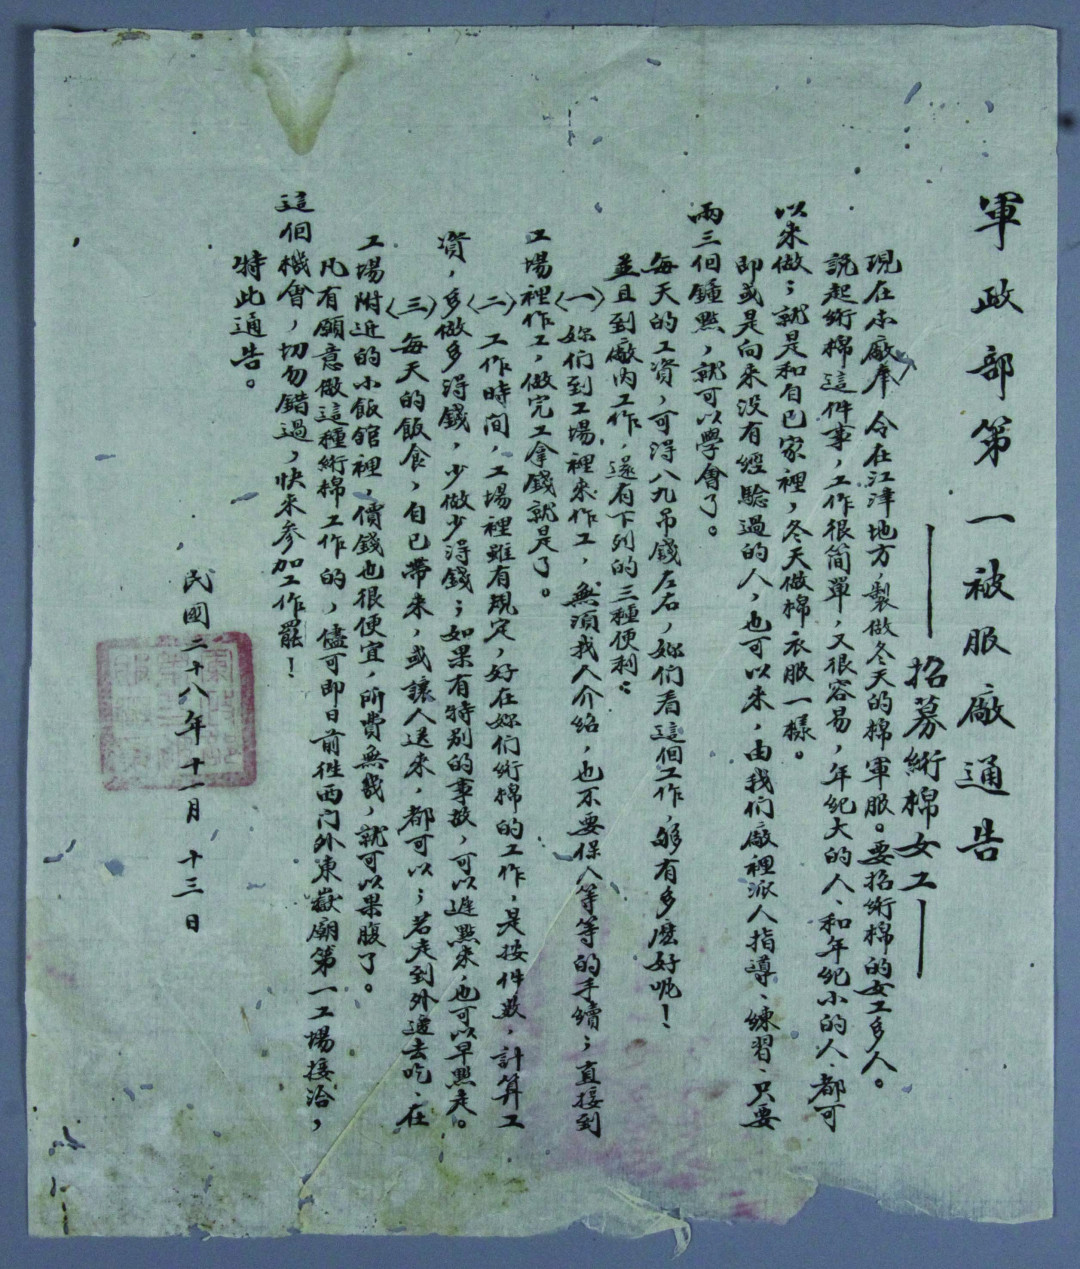 軍政部第一被服廠通告
——招募絎棉女工——
現在本廠奉 令在江津地方，製做冬天的棉軍服。要招絎棉的女工多人。
說起絎棉這件事，工作很简單，又很容易，年紀大的人、和年紀小的人、都可
以来做；就是和自已家裡，冬天做棉衣服一樣。
即或是向来没有經驗過的人，也可以来，由我们廠裡派人指導、練習、只要
兩三個鐘點，就可以學會了。
每天的工資，可得八九吊錢左右，妳们看這個工作，够有多麽好呢！
並且到廠内工作，還有下列的三種便利：
〈一〉妳们到工場裡来作工，無須我人介紹，也不要保人等等的手續；直接到
工場裡作工，做完工拿錢就是了。
〈二〉工作時间，工場裡雖有規定，好在妳们絎棉的工作，是按件数，計算工
資，多做多得錢，少做少得錢；如果有特别的事故，可以遲點来，也可以早點走。
〈三〉每天的飯食，自已帶来，或讓人送来，都可以；若走到外邊去吃、在
工場附近的小飯館裡，價錢也很便宜，所費無幾，就可以果腹了。
凡有願意做這種絎棉工作的，儘可即日前徃西门外東嶽廟第一工場接洽，
這個機會，切勿錯過，快来参加工作罷！
特此通告。
民國二十八年十一月 十三日